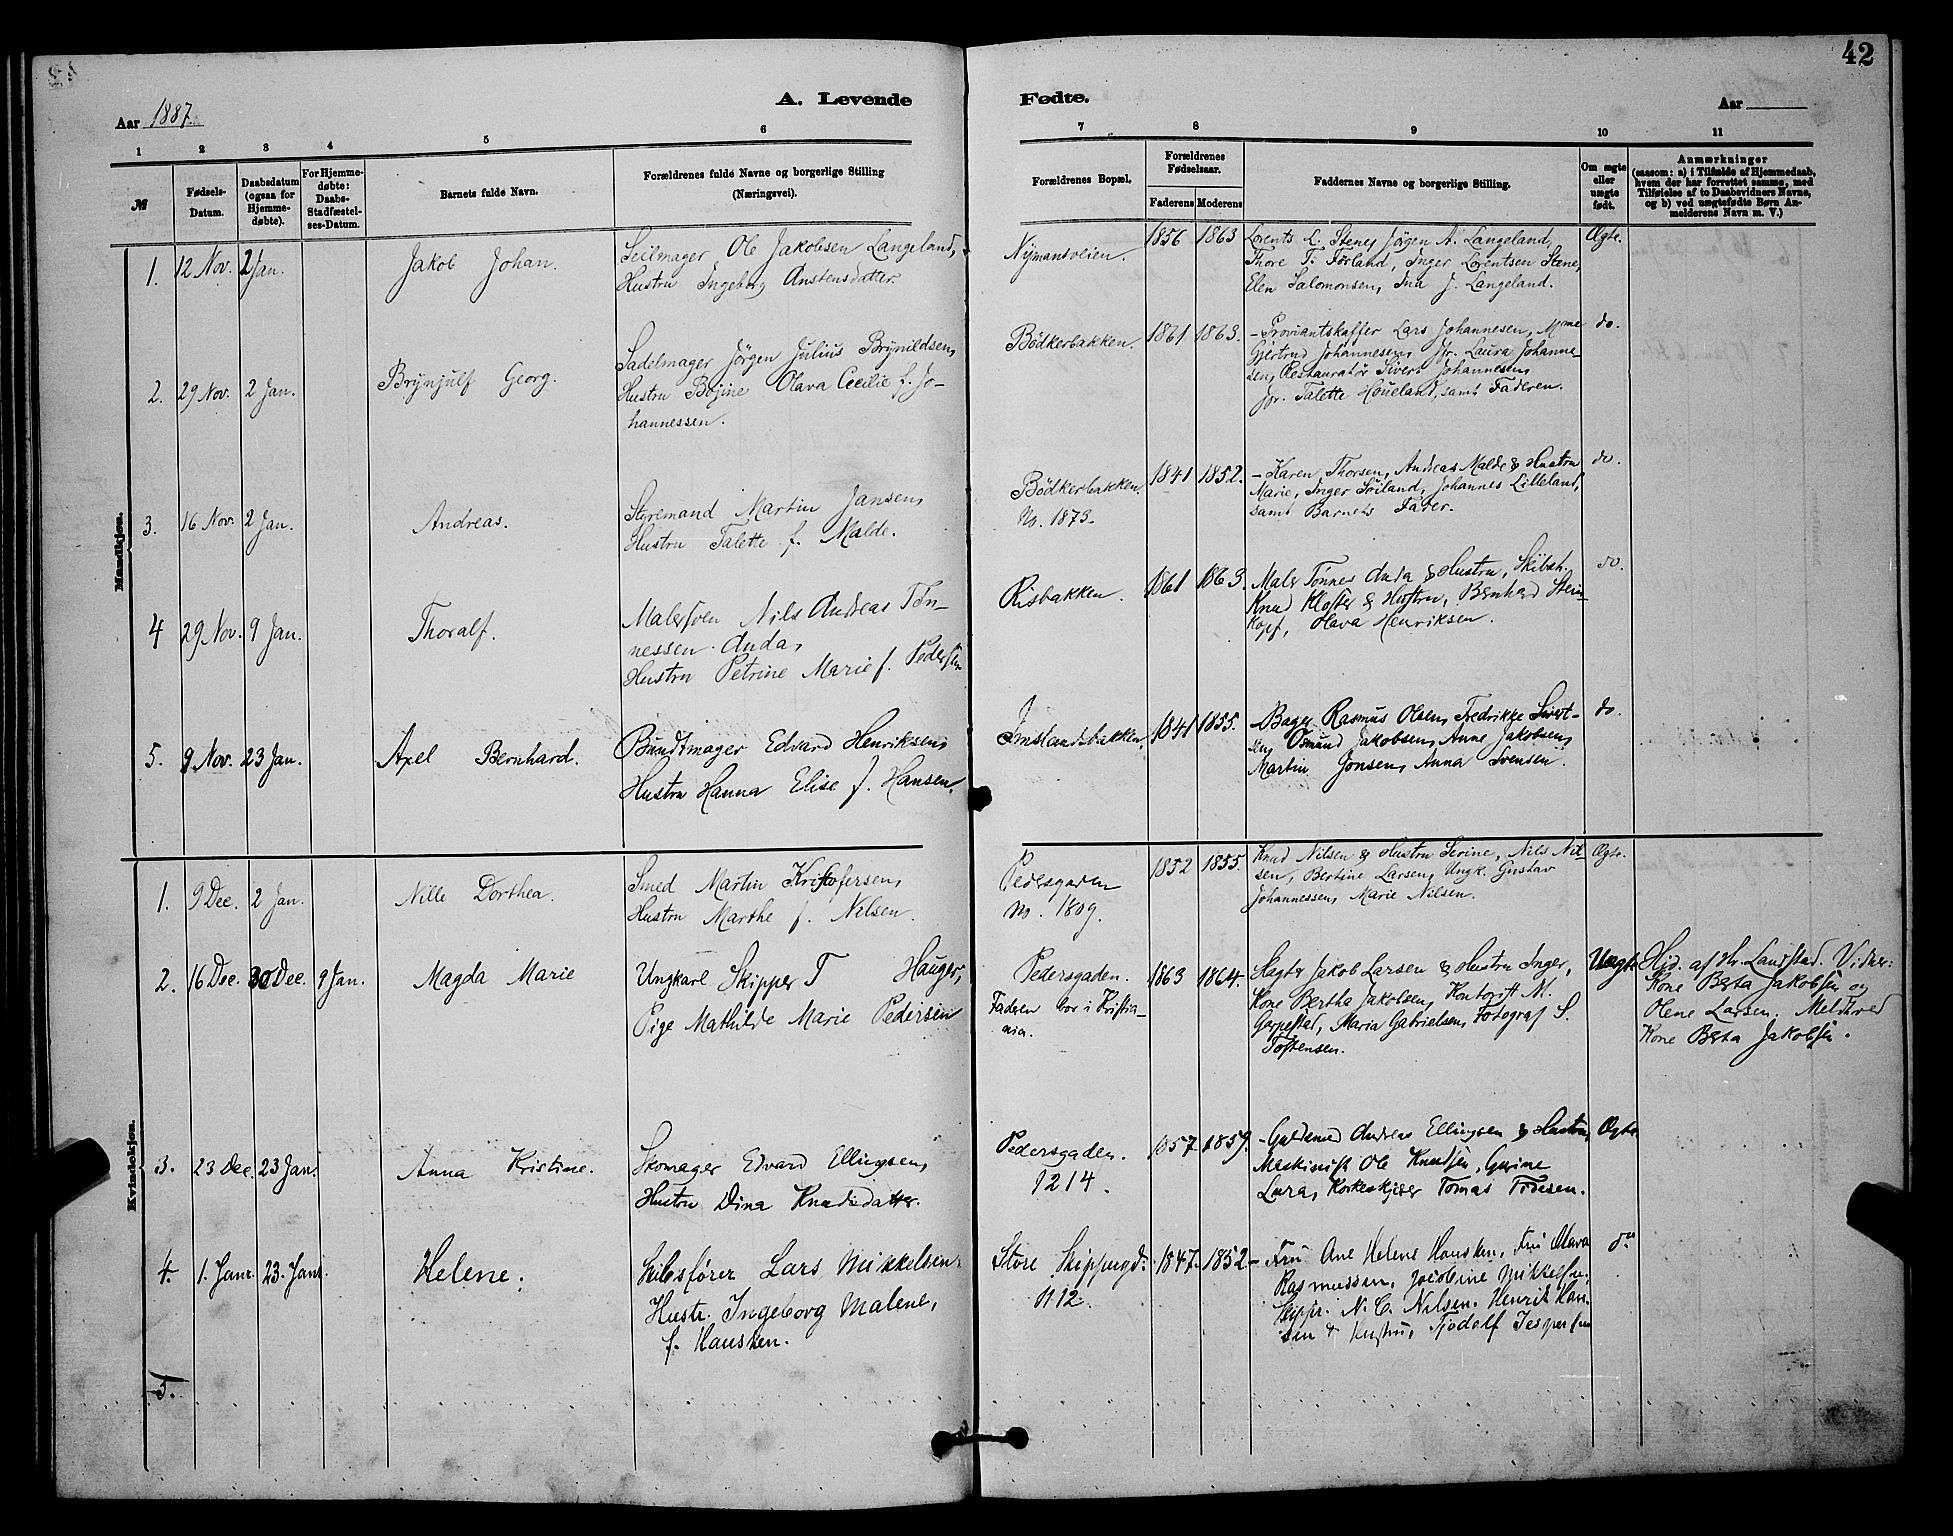 42
Aar 1887.
A. Levende
Fødte.
Aar
1 2 3 4 5 6
7 8 9 10 11
№
Fødsels-
Datum.
Daabsdatum
(ogsaa for
Hjemme-
døbte).
For Hjemme-
døbte:
Daabs-
Stadfæstel-
ses-Datum.
Barnets fulde Navn.
Forældrenes fulde Navne og borgerlige Stilling
(Næringsvei).
Forældrenes Bopæl.
Forældrenes
Fødselsaar.
Faderens Moderens
Faddernes Navne og borgerlige Stilling.
Om ægte
eller
uægte
født.
Anmærkninger
(saasom: a) i Tilfælde af Hjemmedaab,
hvem der har forrettet samme, med
Tilføielse af to Daabsvidners Navne,
og b) ved uægtefødte Børn An-
melderens Navn m. V.)
Mandkjøn.
1. 12 Nov. 2 Jan.
Jakob Johan.
Seilmager Ole Jakobsen Langeland,
Hustru Ingeborg Anstensdatter.
Nymansveien.
1856 1863
Lorents L. Stene, Jørgen A. Langeland,
Thore T. Førland, Inger Lorentsen Stene,
Elen Salomonsen, Ina J. Langeland.
Ægte.
2. 29 Nov. 2 Jan.
Brynjulf Georg.
Sadelmager Jørgen Julius Brynildsen,
Hustru Bojine Olava Cecilie f. Jo-
hannessen.
Bødkerbakken.
1861 1863.
- Proviantskaffer Lars Johannesen, Mme
Gjertrud Johannesen, Jfr. Laura Johanne-
sen, Restauratør Sivert Johannesen,
Jfr. Talette Houeland, samt Faderen.
do.
3. 16 Nov. 2 Jan.
Andreas.
Styremand Martin Jansen,
Hustru Talette f. Malde.
Bødkerbakken.
No. 1873.
1841 1852.
- Karen Thorsen, Andreas Malde & Hustru
Marie, Inger Soiland, Johannes Lilleland,
samt Barnets Fader.
do.
4 29 Nov. 9 Jan.
Thoralf.
Malersven Nils Andreas Tøn-
nessen Anda,
Hustru Petrine Marie f. Pedersen
Risbakken.
1861 1863.
Maler Tønnes Anda & Hustru, Skibsh.
Knud Kloster & Hustru, Bernhard Stein-
kopf, Hava Henriksen.
do.
5. 9 Nov. 23 Jan.
Axel Bernhard.
Bundtmager Edvard Henriksen,
Hustru Hanna Elise f. Hansen.
Imslandsbakken.
1841 1855.
- Bager Rasmus Olsen, Fredrikke Sivert-
sen, Osmund Jakobsen, Anne Jakobsen,
Martin Jonsen, Anna Svensen.
do.
Kvindekjøn.
1. 9 Dec. 2 Jan.
Nille Dorthea.
Smed Martin Kristofersen,
Hustru Marthe f. Nilsen.
Pedersgaden
No. 1809.
1852 1855.
Knud Nilsen & Hustru Serine, Nils Nil-
sen, Bertine Larsen, Ungk. Gustav
Johannessen, Marie Nilsen.
Ægte.
2. 16 Dec. 30 Dec. 9 Jan.
Magda Marie
Ungkarl Skipper T Hauger,
Pige Mathilde Marie Pedersen
Pedersgaden.
Faderen bor i Kristia-
nia.
1863 1864.
Slagter Jakob Larsen & Hustru Inger,
Kone Bertha Jakobsen, Kontorist M.
Garpestad, Maria Gabrielsen, Fotograf S.
Tostensen.
Uægte
Hjd. af Hr. Landstad. Vidner:
Kone Berta Jakobsen og
Olene Larsen. Meldt ved
Kone Berta Jakobsen.
3. 23 Dec. 23 Jan.
Anna Kristine.
Skomager Edvard Ellingsen,
Hustru Dina Knudsdatter.
Pedersgaden.
1214.
1857 1859.
- Guldsmed Andreas Ellingsen & Hustru,
Maskinist Ole Knudsen, Gurine
Lura, Korkeskjærer Tomas Troesen.
Ægte
4. 1. Janr. 23. Janr.
Helene.
Skibsfører Lars Mikkelsen.
Hustr. Ingeborg Malene,
f. Hausken.
Store Skippergd.
1112.
1847. 1852
- Fru Ane Helene Hausken, Fru Olava
Rasmussen, Jacobine Mikkelsen,
Skippr. N. C. Nilsen. Henrik Han-
sen & Hustru, Tjodolf Jespersen
do
5.